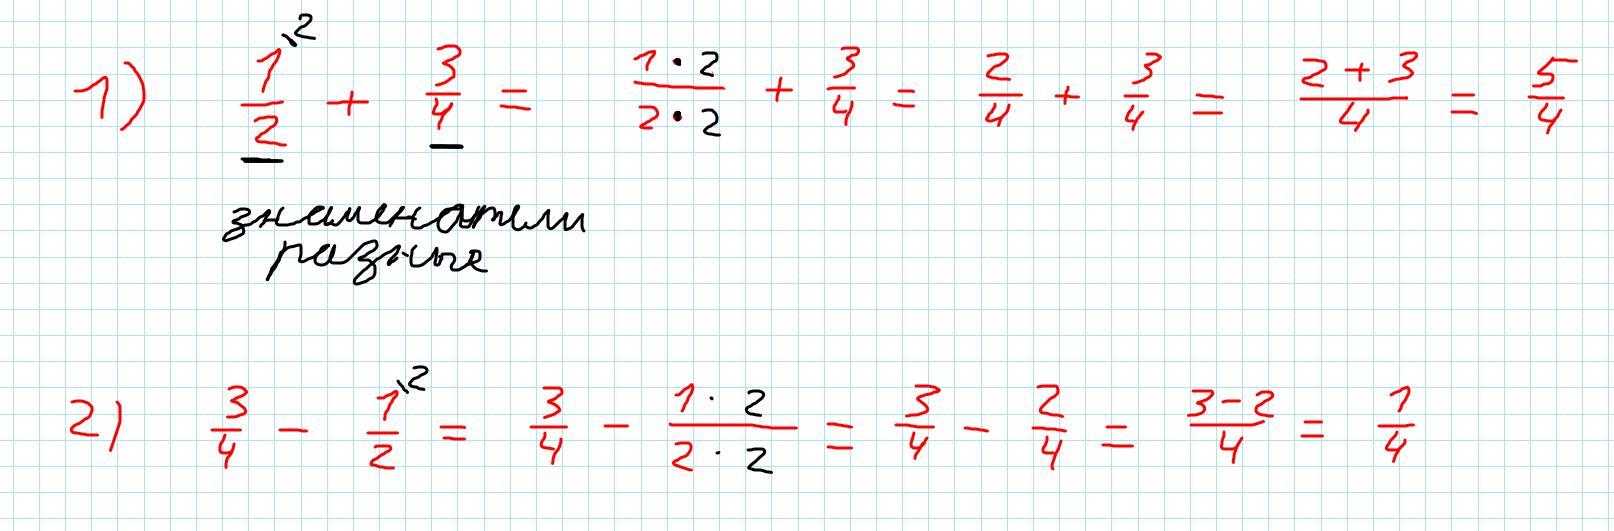 1) 1/2 ↘2 + 3/4 = 1 · 2/2 · 2 + 3/4 = 2/4 + 3/4 = 2 + 3/4 = 5/4
знаменатели
разные
2) 3/4 - 1/2 ↘2 = 3/4 - 1 · 2/2 · 2 = 3/4 - 2/4 = 3 - 2/4 = 1/4